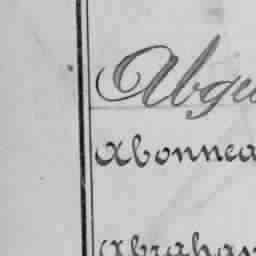 Abgu
Abonnea
Abraham